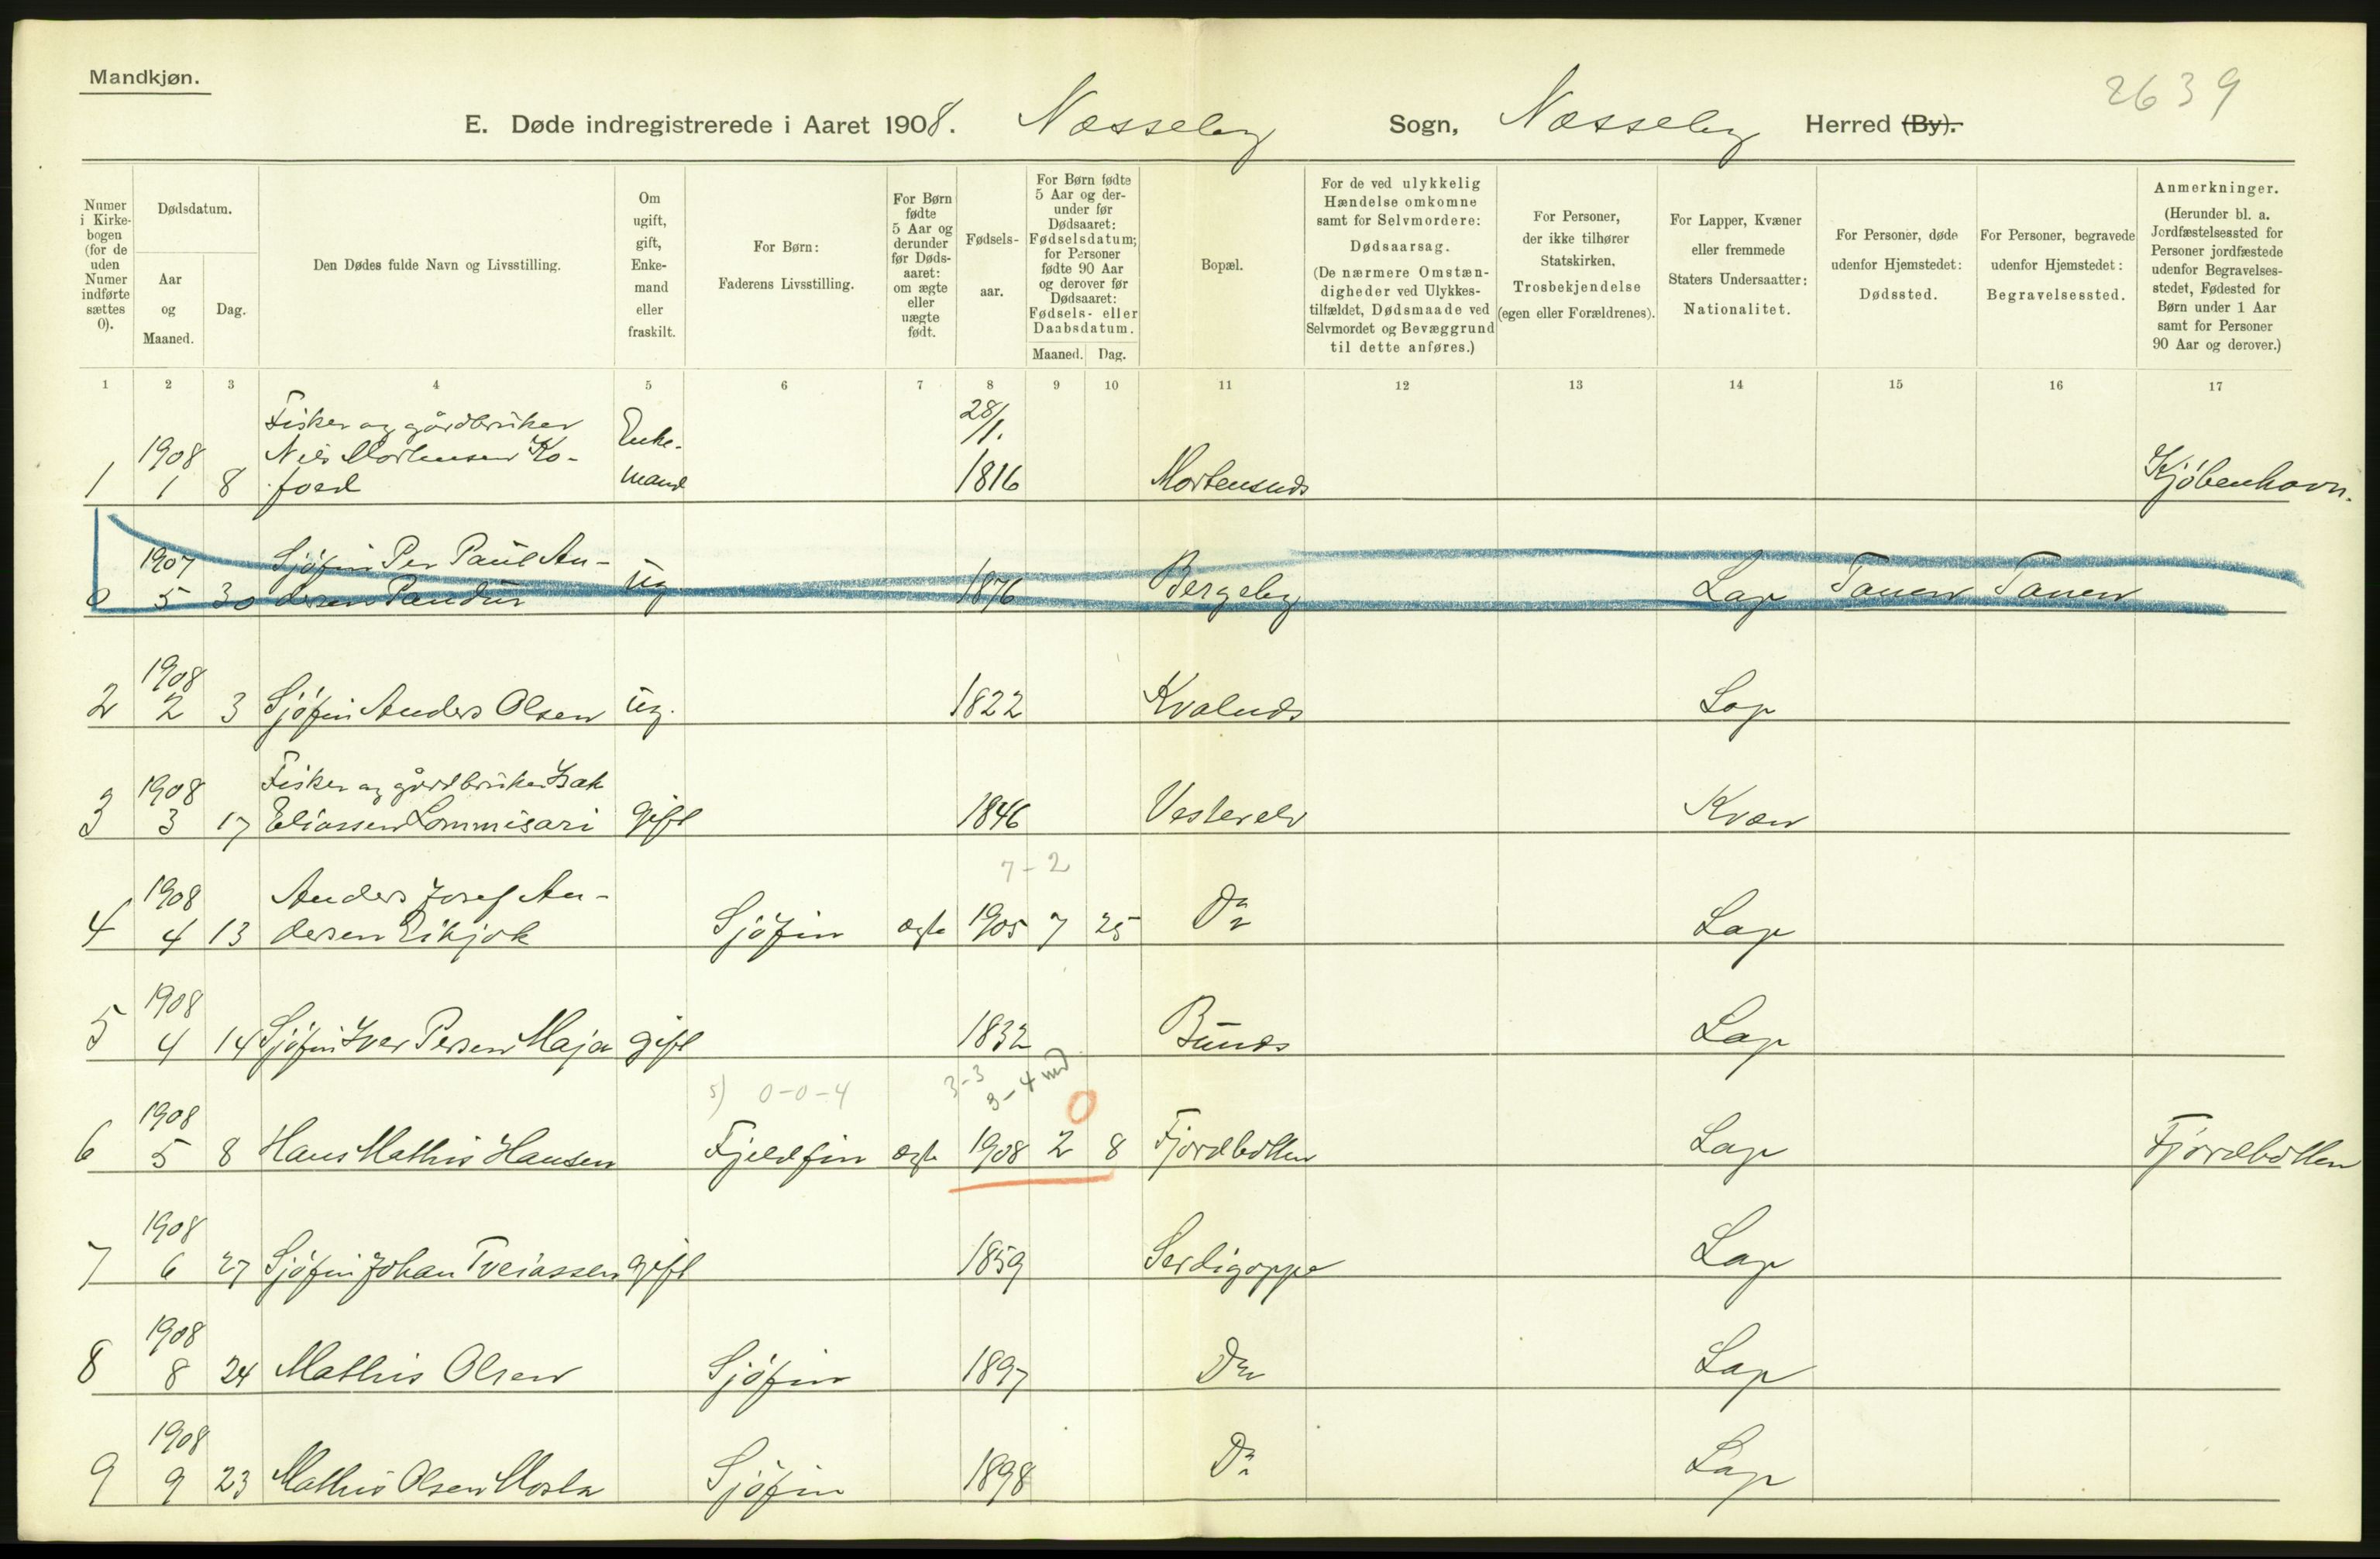 Mandkjøn.
2639
E. Døde indregistrerede i Aaret 1908. Næsseby Sogn, Næsseby Herred (By).
Numer i Kirkebogen (for de uden Numer indførte sættes 0).
Dødsdatum.
Aar og Maaned.
Dag.
Den Dødes fulde Navn og Livsstilling.
Om ugift, gift, Enkemand eller fraskilt.
For Børn: Faderens Livsstilling.
For Børn fødte 5 Aar og derunder før Dødsaaret: om ægte eller uægte født.
Fødselsaar.
For Børn fødte 5 Aar og derunder før Dødsaaret: Fødselsdatum; for Personer fødte 90 Aar og derover før Dødsaaret: Fødsels- eller Daabsdatum.
Maaned. Dag.
Bopæl.
For de ved ulykkelig Hændelse omkomne samt for Selvmordere: Dødsaarsag. (De nærmere Omstændigheder ved Ulykkestilfældet, Dødsmaade ved Selvmordet og Bevæggrund til dette anføres.)
For Personer, der ikke tilhører Statskirken, Trosbekjendelse (egen eller Forældrenes).
For Lapper, Kvæner eller fremmede Staters Undersaatter: Nationalitet.
For Personer, døde udenfor Hjemstedet: Dødssted.
For Personer, begravede udenfor Hjemstedet: Begravelsessted.
Anmerkninger. (Herunder bl. a. Jordfæstelsessted for Personer jordfæstede udenfor Begravelsesstedet, Fødested for Børn under 1 Aar samt for Personer 90 Aar og derover.)
1 2 3 4 5 6 7 8 9 10 11 12 13 14 15 16 17
Fisker og gårdbruker 28/1.
1908 Nils Mortensen Ko- Enke-
1 1 8 foed mand 1816 Mortensnds Kjöbenhavn.
1907 Sjöfin Per Paul An-
0 5 30 dersen ug 1876 Bergeby Lap Tanen Tanen
1908
2 2 3 Sjöfin Anders Olsen ug. 1822 Kvalnds Lap
1908 Fisker og gårdbruker Isak
3 3 17 Eliassen Lommisari gift 1846 Vesterelv Kvæn
7-2
1908 Anders Josef An-
4 4 13 dersen Eikjok Sjöfin ægte 1905 7 25 Do
Lap
1908
5 4 14 Sjöfin Iver Persen Maja gift 1832 Bunds Lap
5) 0-0-4 3-3 3-4 md
0
1908
6 5 8 Hans Mathis Hansen Fjeldfin ægte 1908 2 8 Fjordbotten Lap Fjordbotten
1908
7 6 27 Sjöfin Johan Tveiassen gift 1859 Serdigoppe Lap
1908
8 8 24 Mathis Olsen Sjöfin 1897 Do Lap
1908
9 9 23 Mathis Olsen Sjöfin 1898 Do Lap